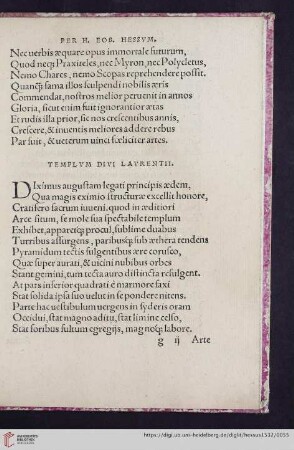 PER H. EOB. HESSVM.
Nec uerbis æquare opus immortale futurum,
Quod neq; Praxiteles, nec Myron, nec Polycletus,
Nemo Chares, nemo Scopas reprehendere possit.
Quanq̃; fama illos sculpendi nobilis æris
Commendat, nostros melior peruenit in annos
Gloria, sicut enim fuit ignorantior ætas
Et rudis illa prior, sic nos crescentibus annis,
Crescere, & inuentis meliores addere rebus
Par fuit, & ueterum uinci fœliciter artes.
TEMPLVM DIVI LAVRENTII.
DIximus augustam legati principis ædem,
Qua magis eximio structuræ excellit honore,
Cratifero sacrum iuueni, quod in æditiori
Arce situm, se mole sua spectabile templum
Exhibet, apparetq; procul, sublime duabus
Turribus assurgens, paribusq; sub æthera tendens
Pyramidum tectis fulgentibus ære corusco,
Quæ super aurati, & uicini nubibus orbes
Stant gemini, cum tecta auro distincta refulgent.
At pars inferior quadrati è marmore saxi
Stat solida ipsa suo uelut in se pondere nitens.
Parte hac uestibulum uergens in syderis oram
Occidui, stat magno aditu, stat limine celso,
Stat foribus fultum egregijs, magnosq; labore.
g ij Arte
https://digi.ub.uni-heidelberg.de/diglit/hessus1532/0055